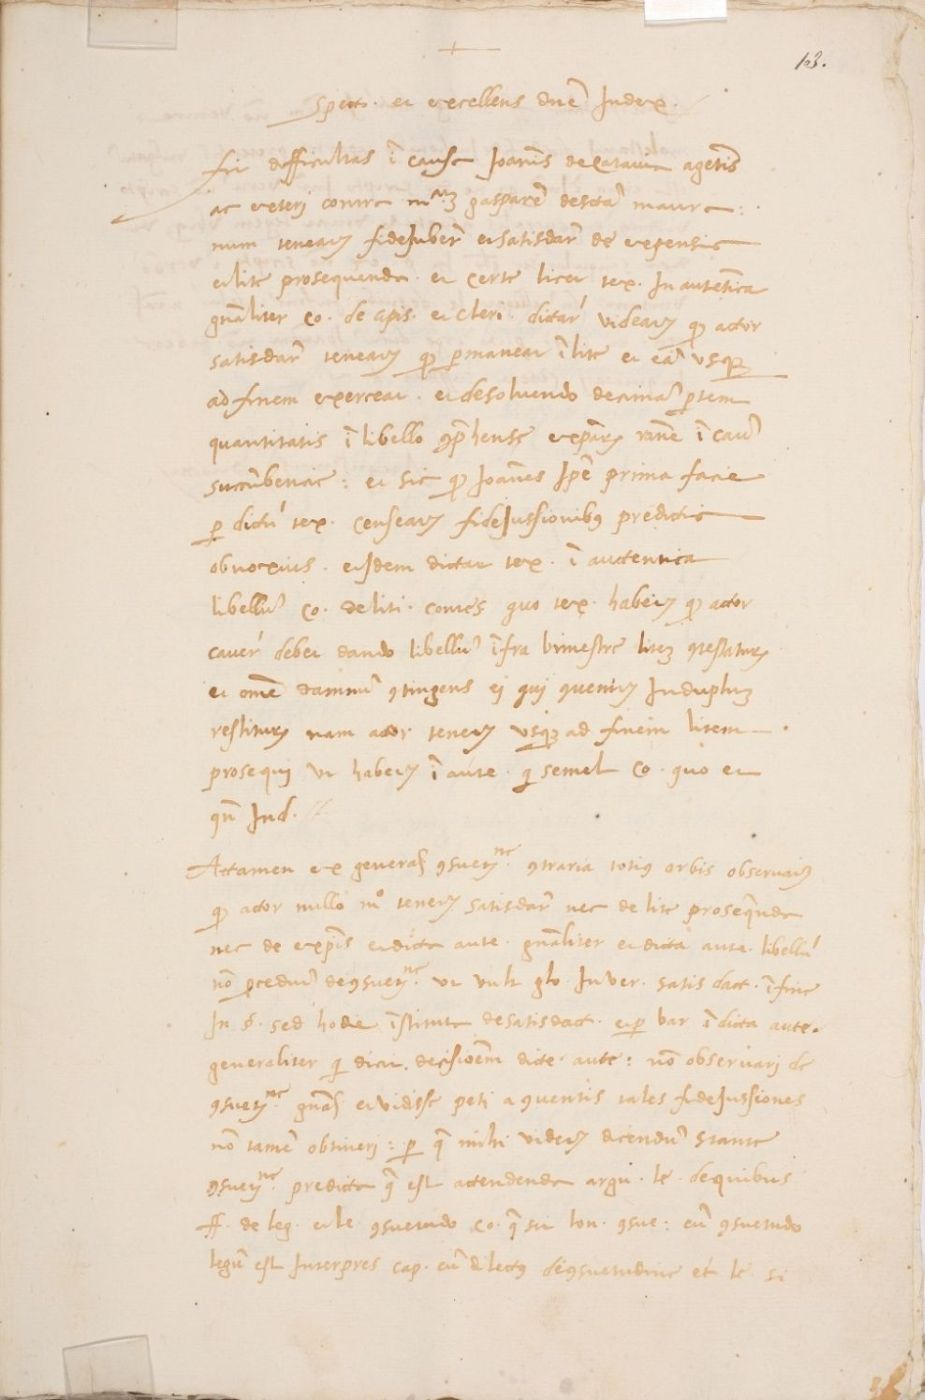 13.
Spect. et excellens dnē Judex.
fit difficultas ī causa Joanīs de catania agētis
ac veteris contra m.rum gasparē desctā maura:
num teneatʳ fideJuberē et satisdarē de expensis
et lite prosequenda. et certe licet tex. In autētica
gnāliter co. de epis. et cleri. dictarʼ videatʳ qͥ actor
satisdarē teneatʳ qͥ pmaneat ī lite et eā usqꝫ
ad finem exerceat. et de solvendo decimā ptem
quantitatis ī libello ꝯphense expēaꝝ ratiōe ī cauā
succūbentie: et sic qͥ Joanes Ipē prima facie
p dictū tex. censeatʳ fideJussionibꝰ predictis
obnoxius. et Idem dictat tex. ī auctentica
libellū co. de liti. contes. quo tex. habetʳ qͥ actor
caverʼ debet dando libellū īfra bimestre litē ꝯtestaturꝝ
et omē damnū ꝯtingens ej quj ꝯvenitʳ In duplum
restiturꝝ nam actor tenetʳ usqꝫ ad finem litem
prosequj ut habetʳ ī aute. qͥ semel co. quo et
qn̄ Jud.
Attamen ex generali ꝯsuetne. ꝯtraria totiꝰ orbis observatʳ
qͥ actor nullo mº tenetʳ satisdarē nec de lite prosequēda
nec de expēis et dicta aute. gnāliter et dicta aute. libellū
nō procedunt de ꝯsuetne. ut vult glo. In ver. satis dact. ī fine
In §. sed hodie īstitute de satisdact. et p bar ī dicta aute.
generaliter qͥ dicit. decisioēm dicte aute: nō observarj de
ꝯsuetne. gnāli et vidisse peti a ꝯventis tales fideJussiones
nō tamē obtinerj: p q̄ mihi videtʳ dicendū stante
ꝯsuetne. predicta q̄ est attendenda argu. le. de quibus
ff. de leg. et le. ꝯsuetudo co. q̄ sit lon. ꝯsue: cū ꝯsuetudo
legū est Interpres cap. cū dilectꝰ de ꝯsuetudine et le. si